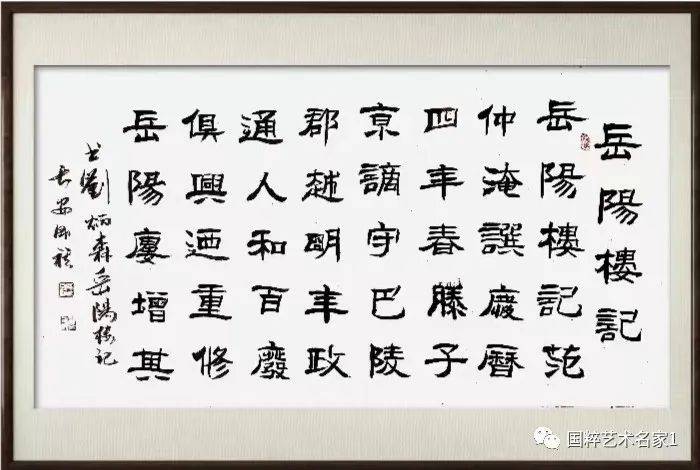 岳陽樓記
岳陽樓記范
仲淹譔慶曆
四年春滕子
京謫守巴陵
郡越明年政
通人和百廢
俱興迺重修
岳陽廔增其
书劉炳森岳陽楼记
长安
国粹艺术名家1